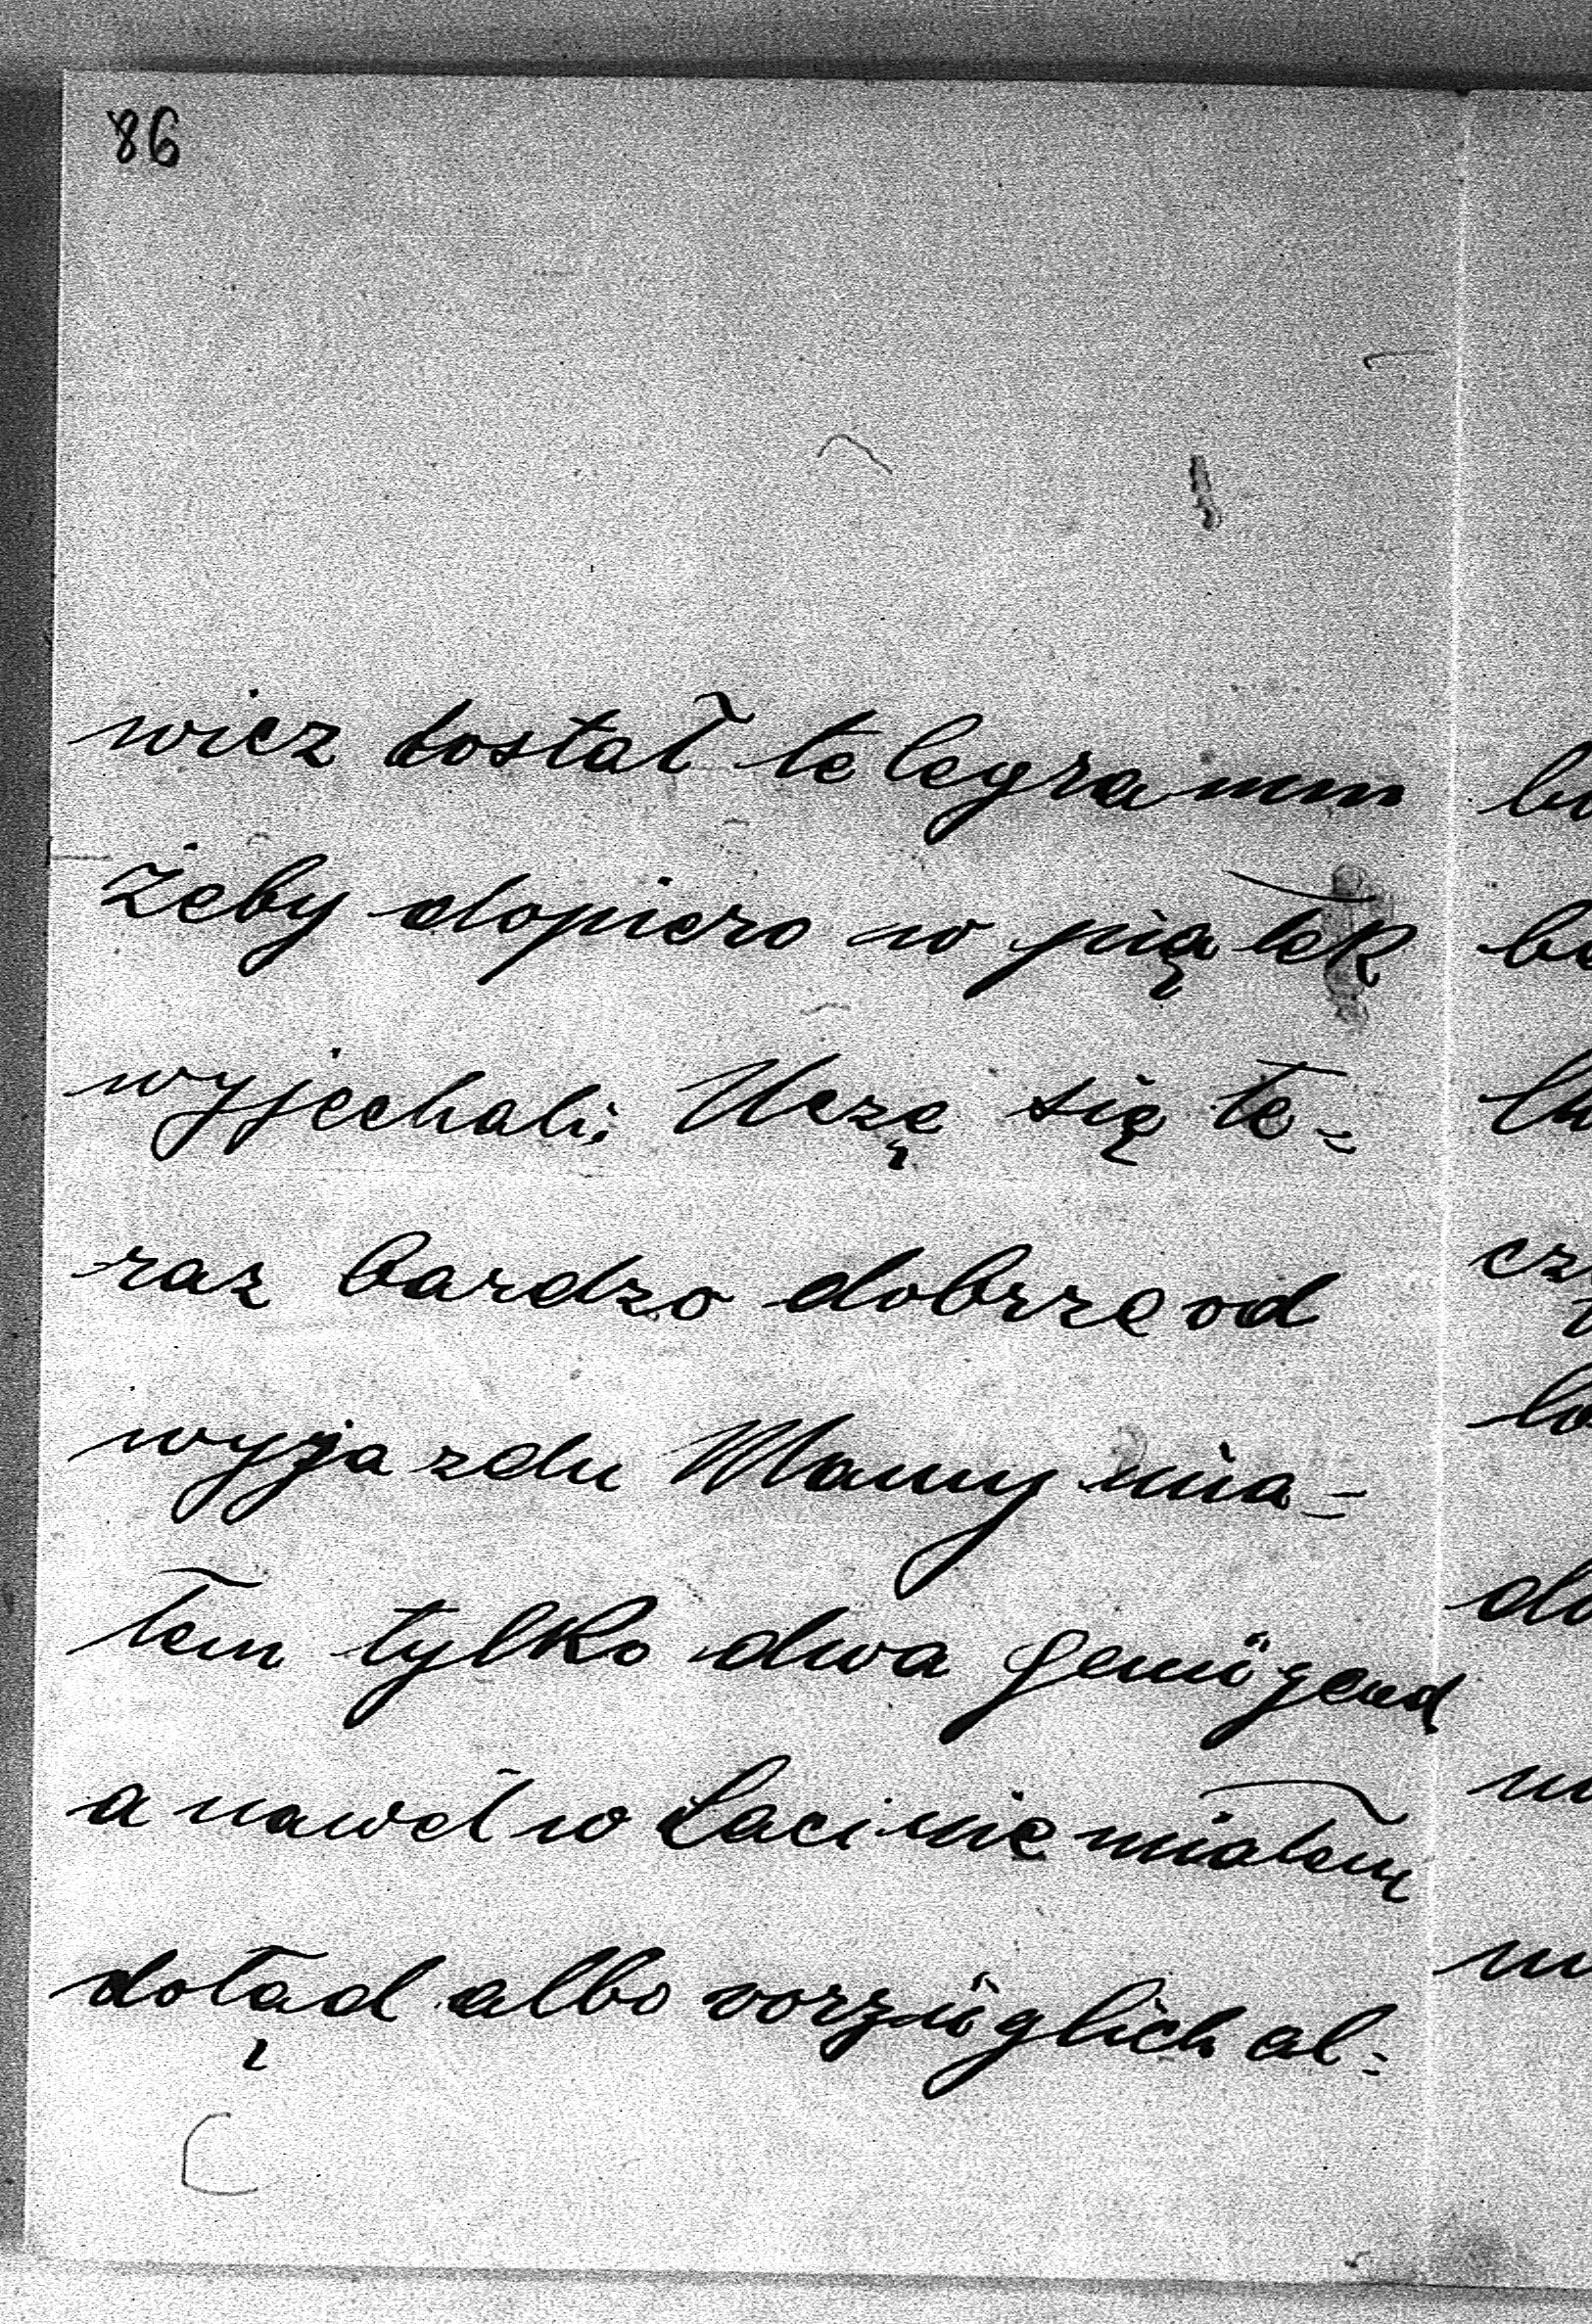 86
wicz dostał telegramm
żeby dopiero w piątek
wyjechali. Uczę się te=
raz bardzo dobrze od
wyjazdu Mamy mia=
łem tylko dwa genügend
a nawet w Łacinie miałem
dotąd albo vorzüglich al=